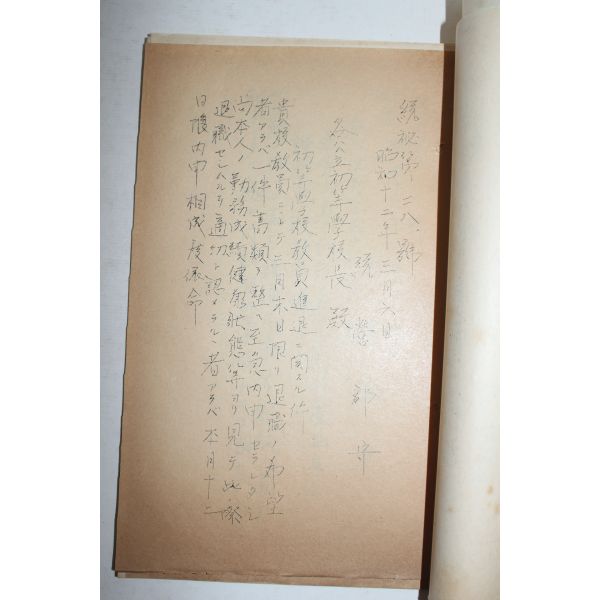 統秘第二八號
昭和十二年三月六日
統營郡守
各公立初等學校長殿
初等學校教員進退ニ関スル件
貴校教員ニシテ三月末日限リ退職ノ希望
者アラバ一件書類ヲ整ヘ至急内申セラレタシ
尚本人ノ勤務成績健康状態等ヨリ見テ此ノ際
退職セシムルヲ適切ト認メラルヽ者アラバ本月十二
日限内申相成度依命